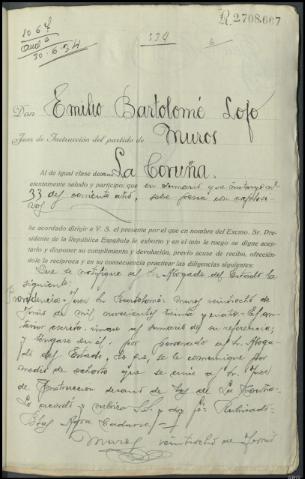 R.2708.607
1067
30-6-34
Don Emilio Bartolomé
Juez de Instrucción del partido de Muros
Al de igual clase decano La Coruña.
atentamente saludo y participo: que en sumario que instruyo al
33 del corriente año, sobre
he acordado dirigir a V. S. el presente por el que en nombre del Excmo. Sr. Pre-
sidente de la República Española le exhorto y en el mío le ruego se digne acep-
tarlo y disponer su cumplimiento y devolución, previo acuse de recibo, ofrecién-
dole la recíproca y en su consecuencia practicar las diligencias siguientes:
Que se notifique al Sr. Abogado del Estado la
siguiente:
Providencia = Juez Sr. Bartolomé Muros veintiocho de
Junio de mil novecientos treinta y cuatro. El an-
terior escrito únase al sumario de su referencia;
y téngase en él por personado al Sr. Aboga-
do del Estado, lo que se le comunique por
medio de exhorto que se envíe al Sr. Juez
de Instrucción decano de los de La Coruña.
Lo acordó y rubrica S.S. y doy fe = Rubricado =
Muros veintiocho de Junio